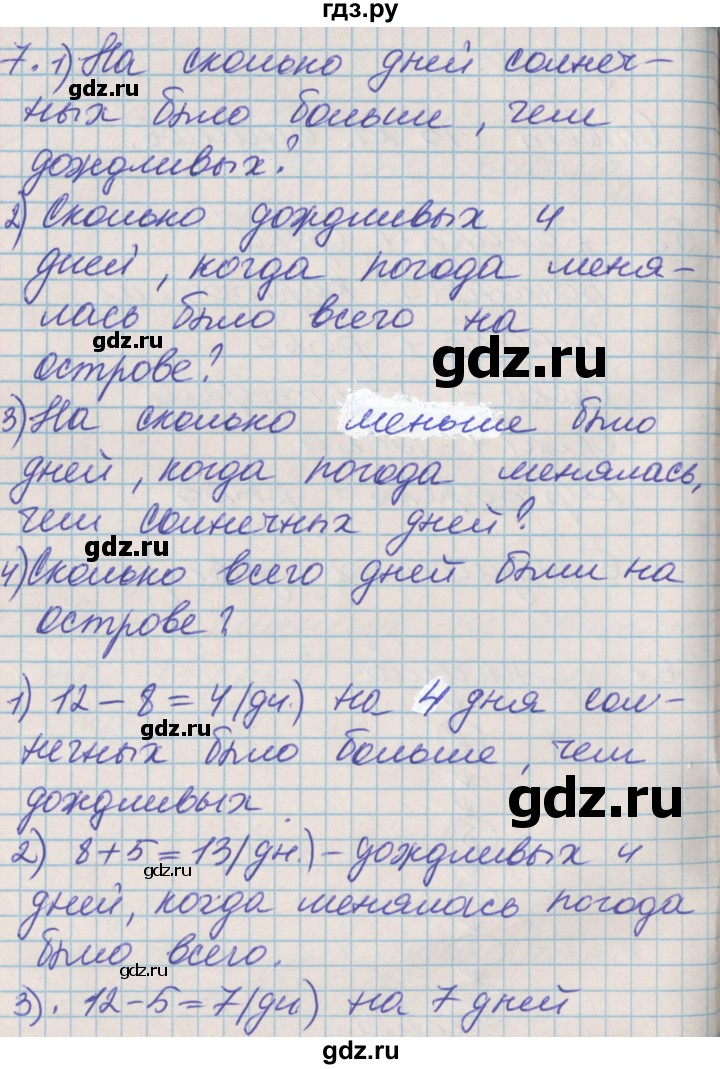 гдз.ру
7. 1) На сколько дней солнеч-
gdz.ru
ных было больше, чем
дождливых?
2) Сколько дождливых и
дней, когда погода меня-
лась было всего на
gdz.ru
gdz.ru
острове?
3) На сколько меньше было
дней, когда погода менялась,
чем солнечных дней?
gdz.ru
4) Сколько всего дней были на
острове?
gdz.ru
1) 12 - 8 = 4 (дн.) на 4 дня сол-
gdz.ru
нечных было больше, чем
gdz.ru
дождливых.
2) 8 + 5 = 13 (дн.) - дождливых и
gdz.ru
дней, когда менялась погода
было всего.
gdz.ru
3). 12 - 5 = 7 (дн) на 7 дней
gdz.ru
gdz.ru